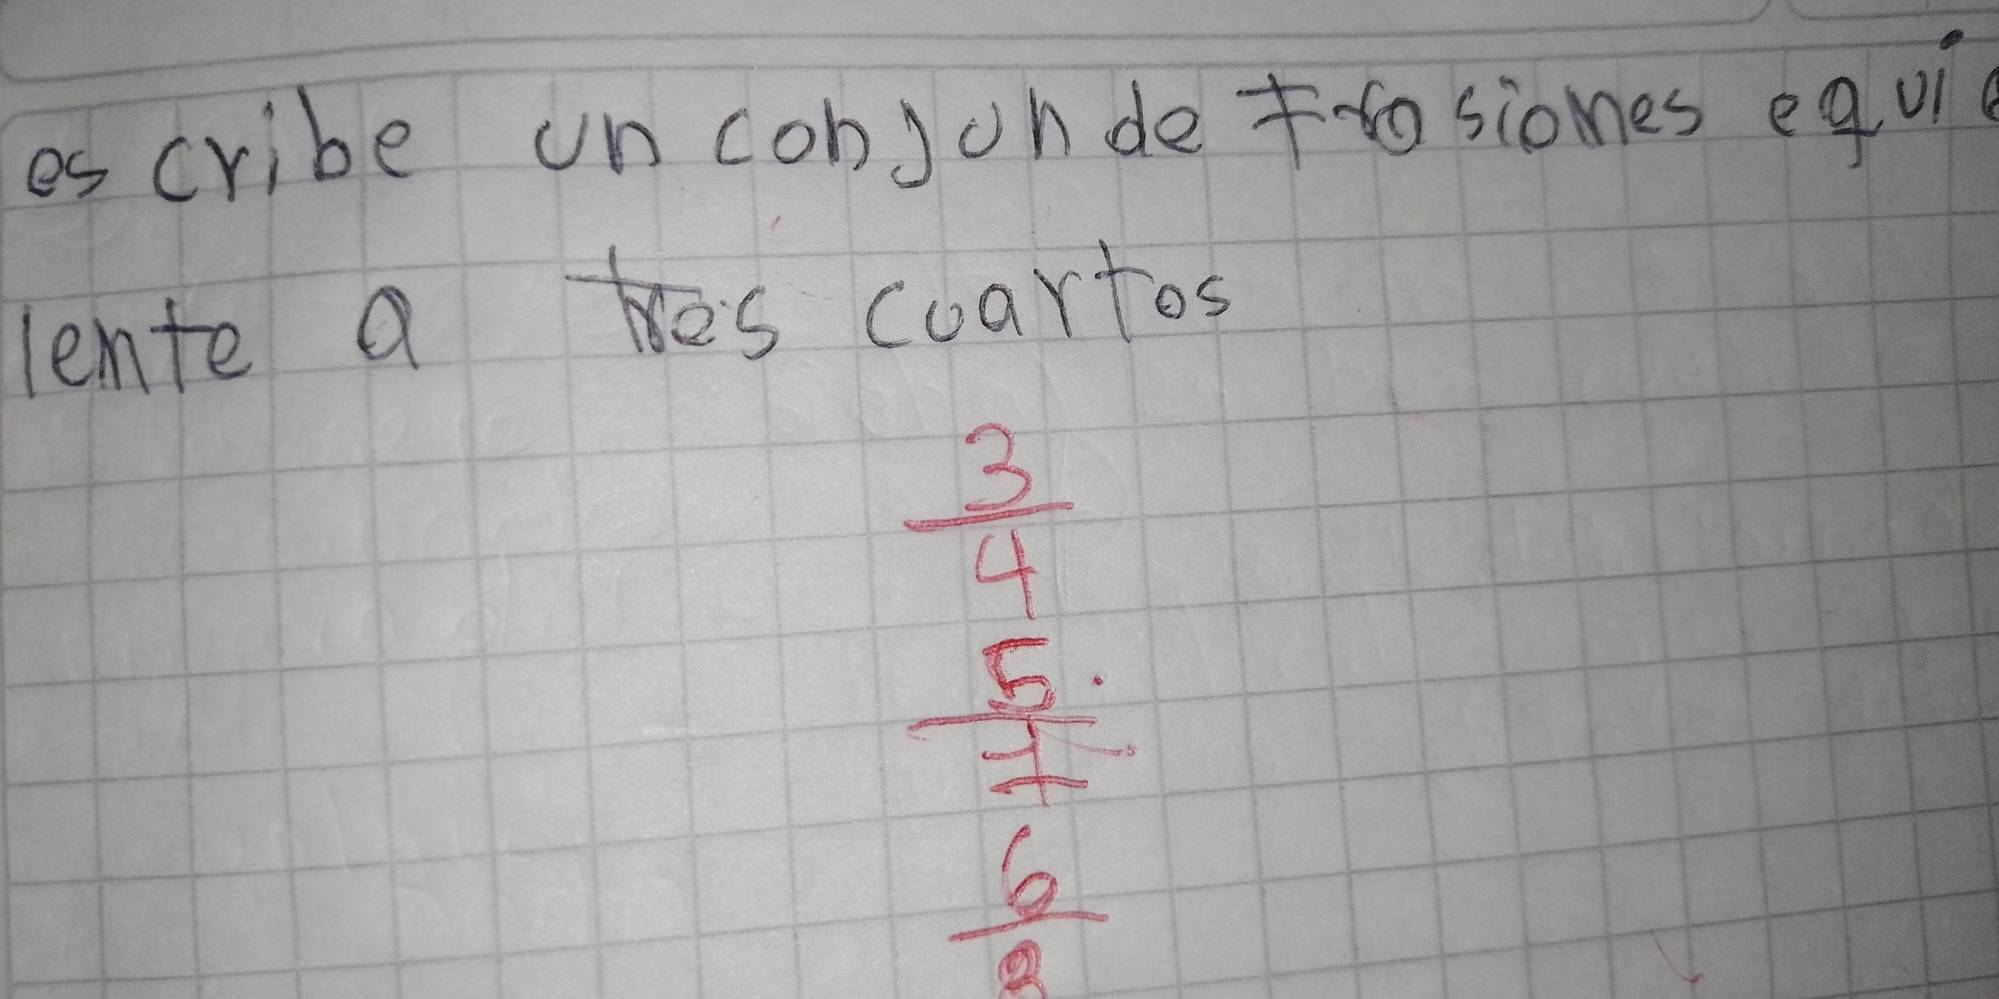 escribe un conjun de frasiones equie
lente a tres cuartos
3
4
5
7
6
8